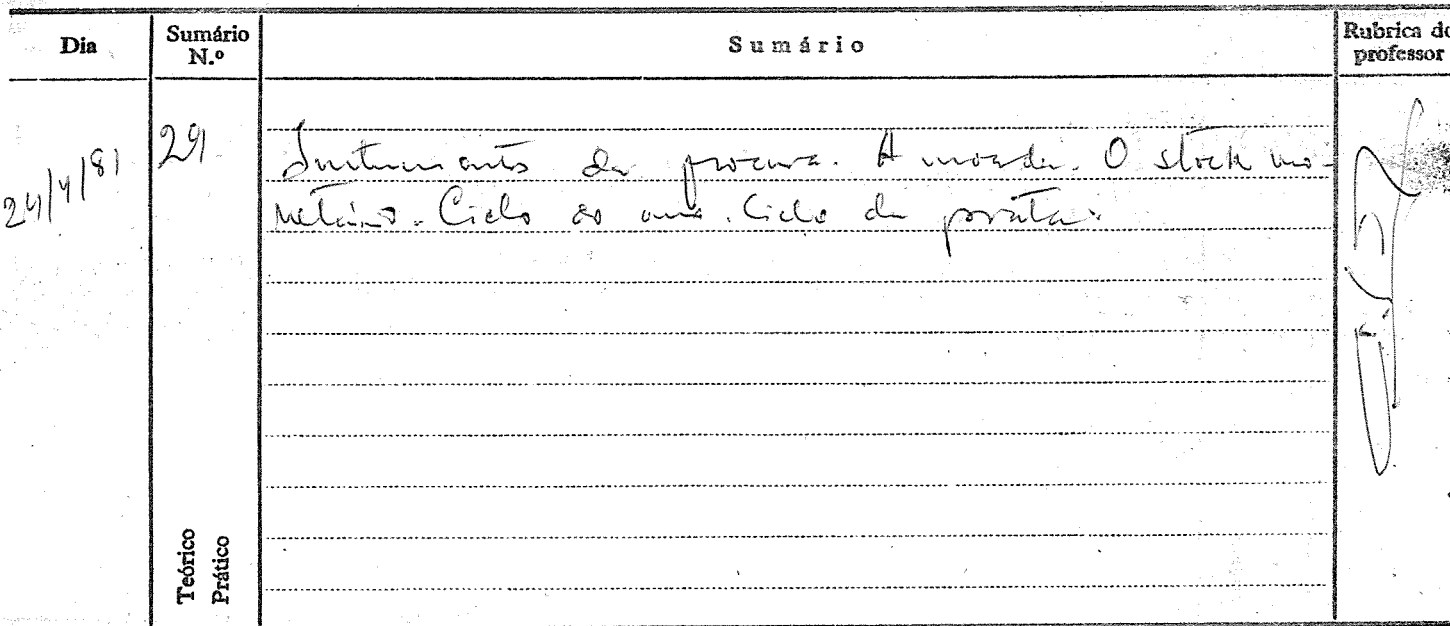 Dia
Sumário N.º
Sumário
Rubrica do professor
24/4/81
29
Instrumentos da procura. A moeda. O stock mo-
netário. Ciclo do ouro. Ciclo da prata.
Teórico
Prático